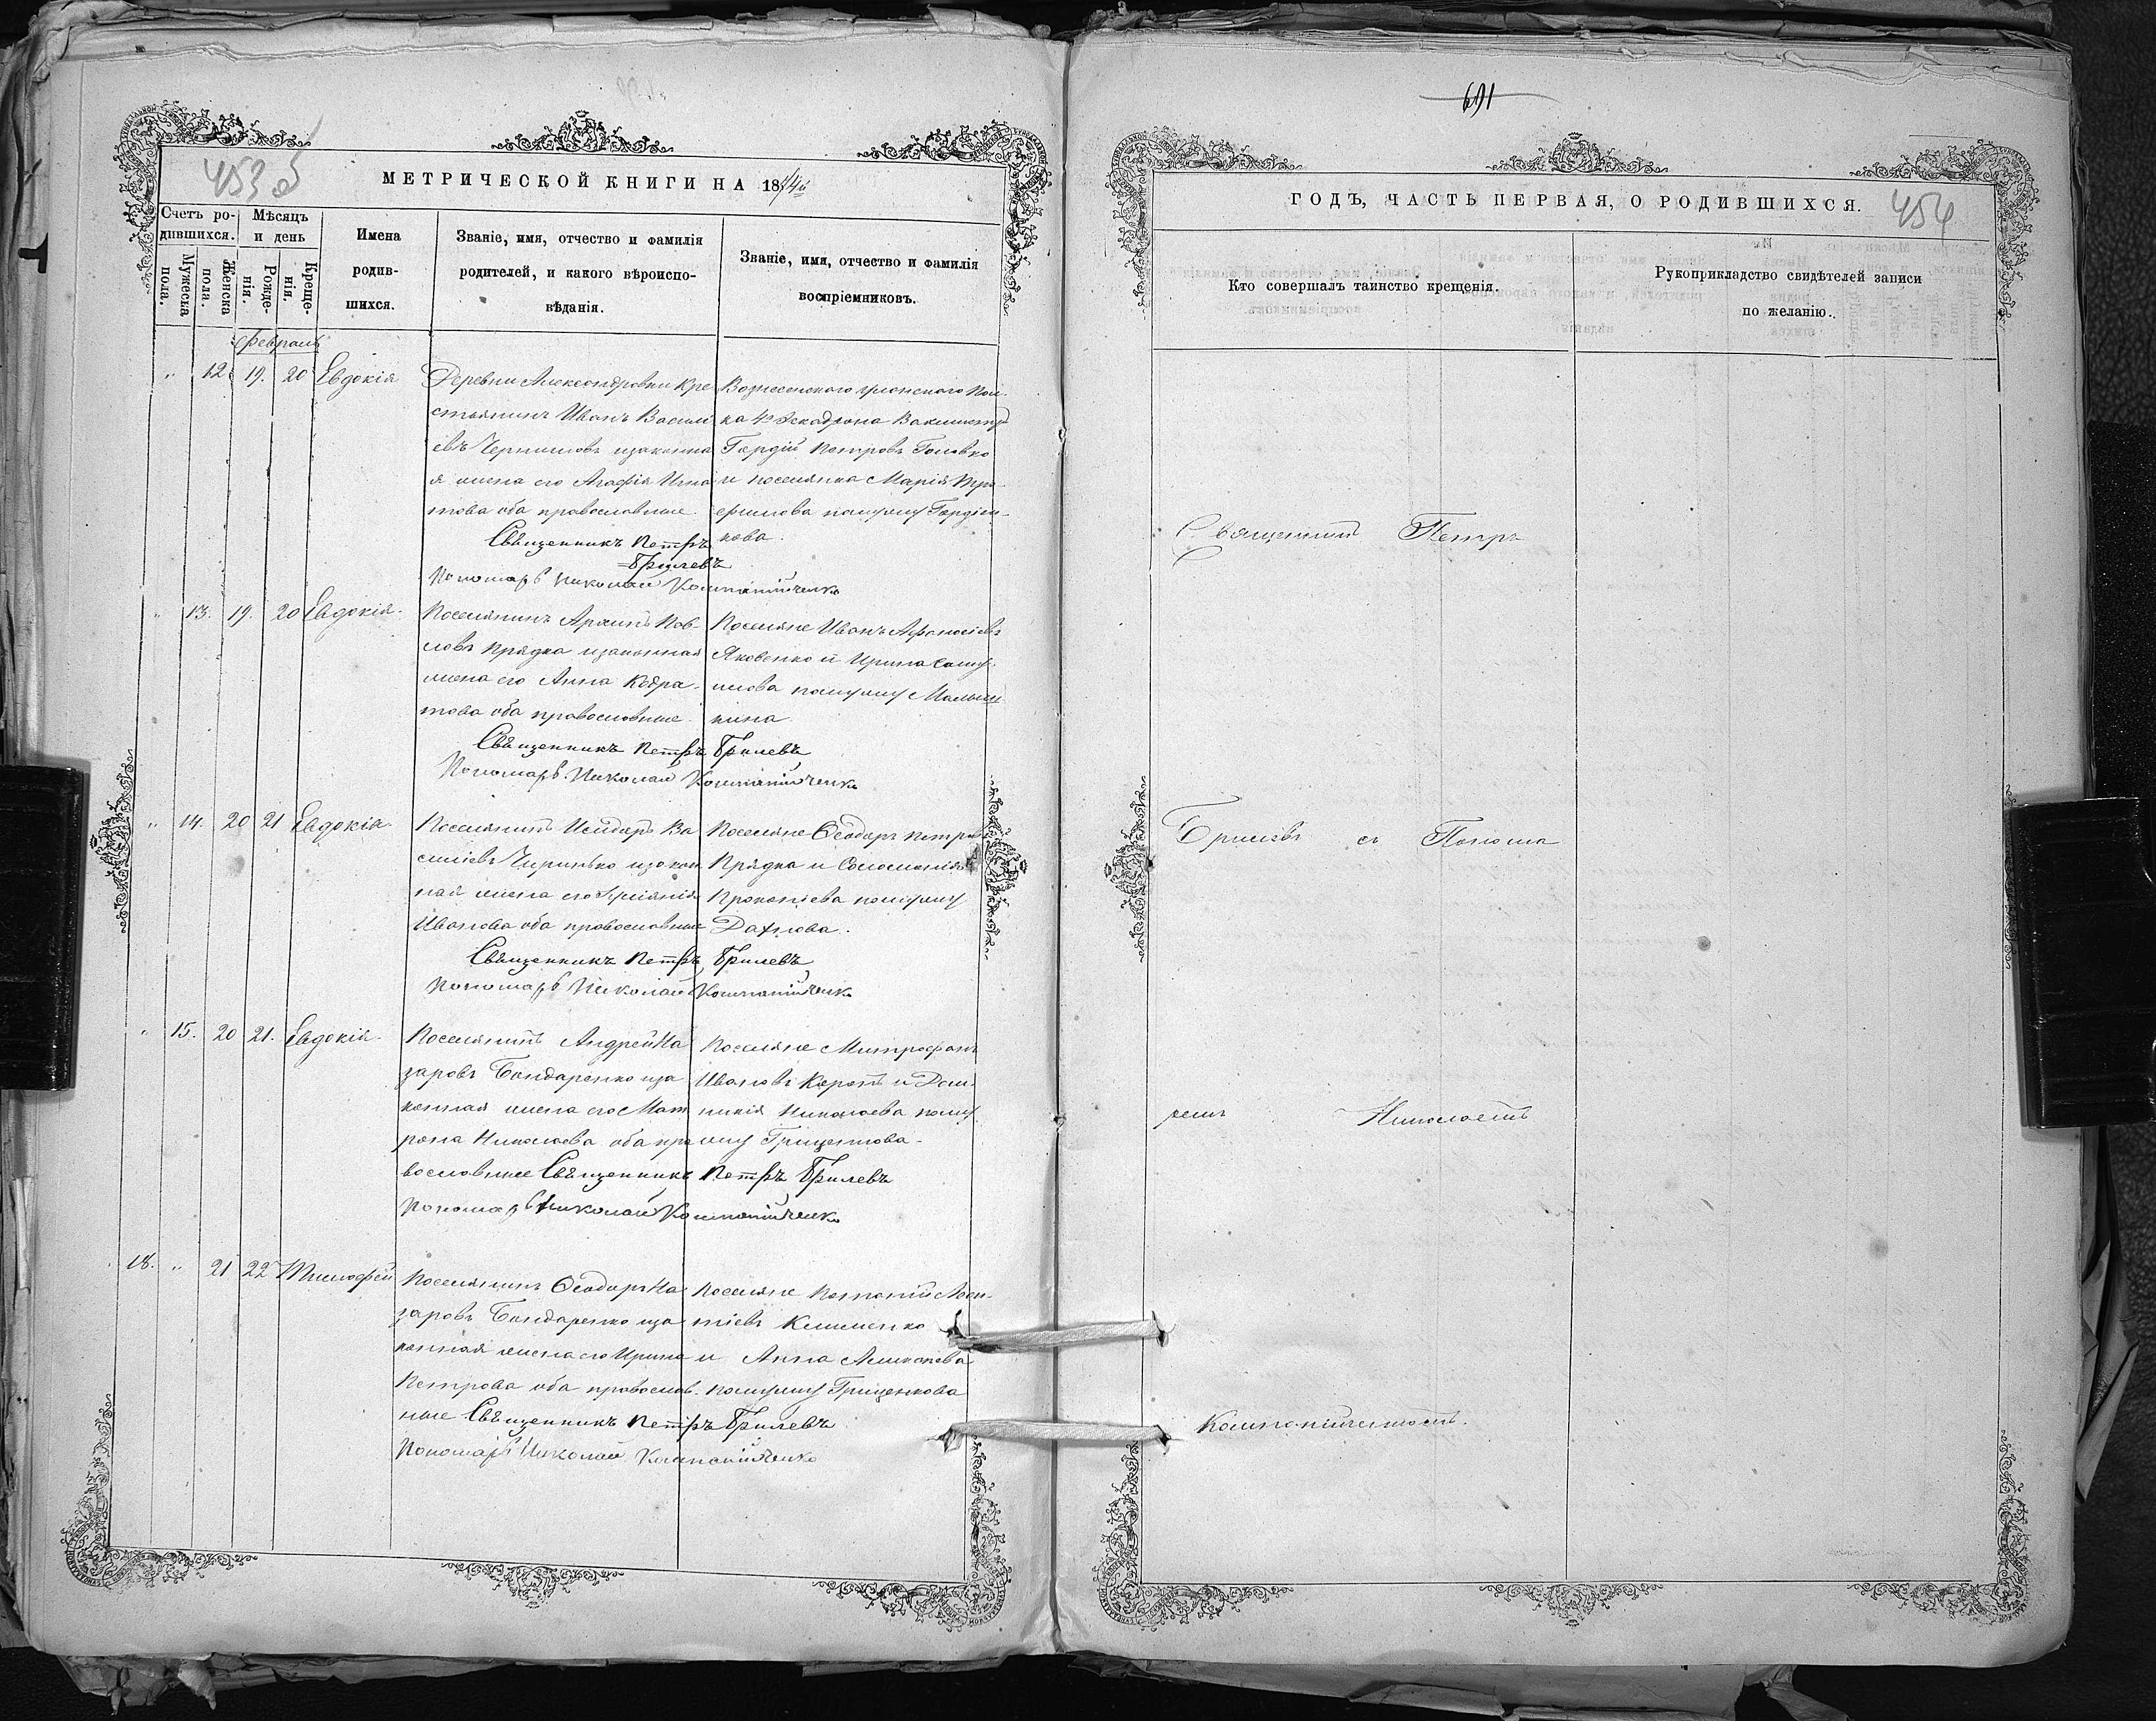 691
453 об
МЕТРИЧЕСКОЙ КНИГИ НА 18
Счетъ ро-
дившихся.
Мѣсяцъ
и день
Мужеска
пола.
Женска
пола.
Рожде-
нія.
Креще-
нія.
Имена
родив-
шихся.
Званіе, имя, отчество и фамилія
родителей, и какого вѣроиспо-
вѣданія.
Званіе, имя, отчество и фамилія
воспріемниковъ.
Февраль
" 12. 19. 20 Евдокія
Деревни Александровки кре
стьянинъ Иванъ Васили
евъ изаконна
я жена его Агафія Игна
това оба православные.
Священникъ Петръ
Брилевъ
Пономарь Николай Компанійченко
Вознесенского уланского пол-
ка 4го Эскадрона Вахмистръ
Гордій Петровъ Головко
и поселянка Марія Тро-
фимова помужу Гордіен-
кова.
" 13. 19. 20 Евдокія.
Поселянинъ Архипъ Пав-
ловъ Прядка изаконная
жена его Анна Кодра-
това оба православные.
Священникъ Петръ Брилевъ
Пономарь Николай Компанійченко
Поселяне Иванъ Афанасіевъ
Яковенко и Ирина
помужу
кина.
" 14. 20 21 Евдокія.
Поселянинъ Исидоръ Ва
силіевъ изакон
ная жена его
Иванова оба православные
Священникъ Петръ Брилевъ
Пономарь Николай Компанійченко
Поселяне Ѳеодоръ Петровъ
Прядка и Соломонія
Прокопіева помужу
Дахнова.
" 15. 20 21. Евдокія.
Поселянинъ Андрей На
заровъ Бондаренко иза
конная жена его Мат
рона Николаева оба пра
вославные Священникъ Петръ Брилевъ
Пономарь Николай Компанійченко
Поселяне Митрофанъ
Ивановъ и Дом-
никія Николаева пому
жу Гриценкова.
18. " 21 22 Тимофей
Поселянинъ Ѳеодоръ На
заровъ Бондаренко иза
конная жена его Ирина
Петрова оба православ-
ные Священникъ Петръ Брилевъ
Пономарь Николай Компанійченко
Поселяне Леон-
тіевъ Клименко
и Анна
помужу Гриценкова
454
ГОДЪ, ЧАСТЬ ПЕРВАЯ, О РОДИВШИХСЯ.
Кто совершалъ таинство крещенія.
Рукоприкладство свидѣтелей записи
по желанію.
Священникъ Петръ
Брилевъ съ Понома
ремъ Николаемъ
Компанійченкомъ.